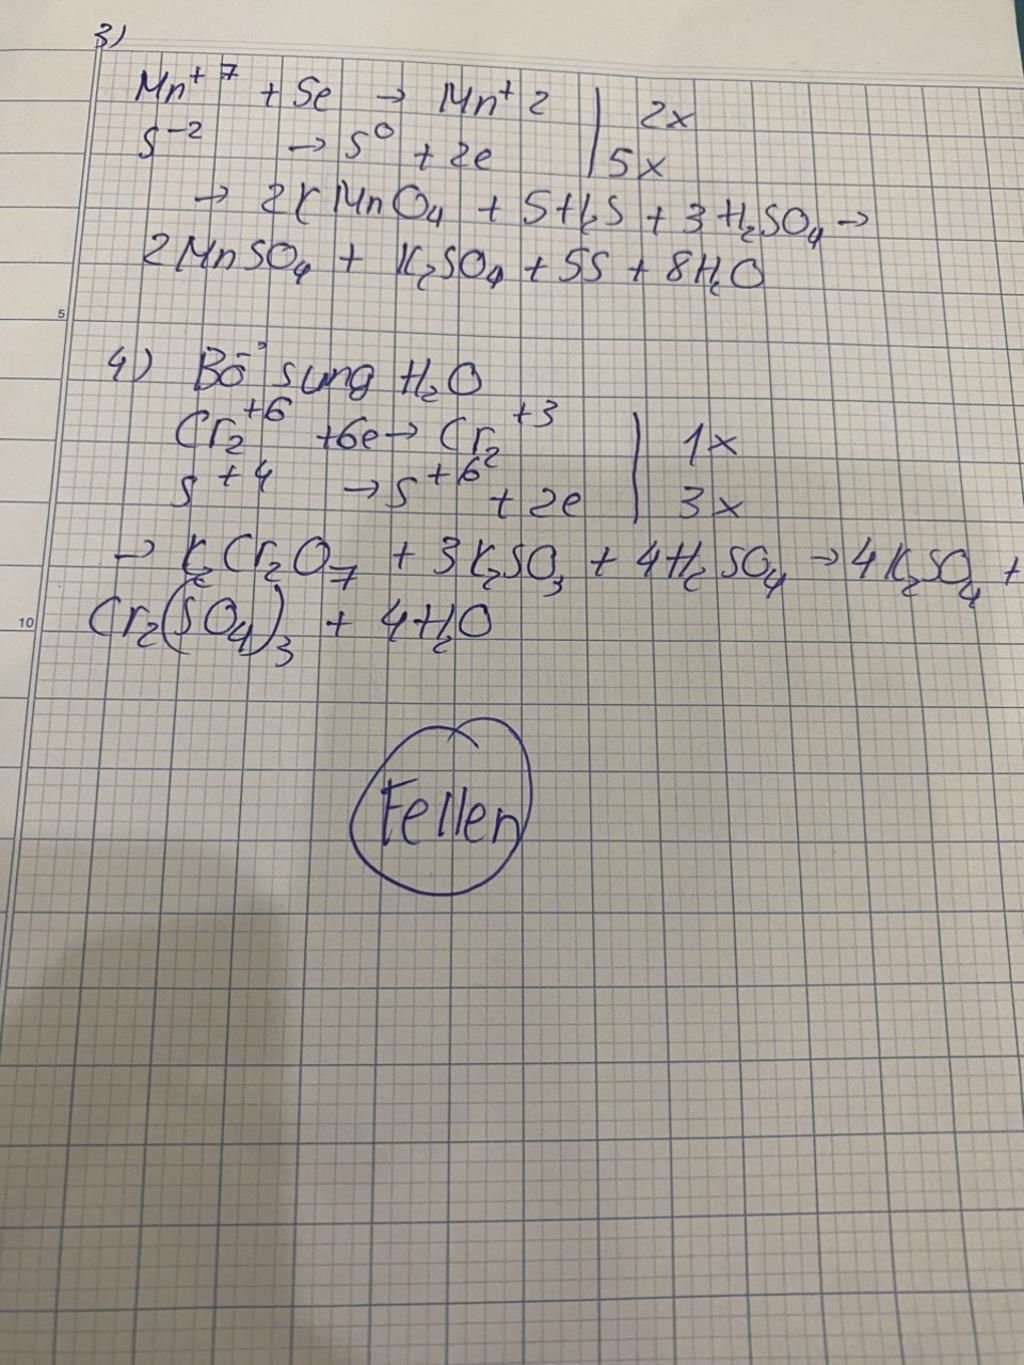 3)
Mn⁺⁷ + 5e → Mn⁺² | 2x
S⁻² → S⁰ + 2e | 5x
→ 2KMnO₄ + 5H₂S + 3H₂SO₄ →
2MnSO₄ + K₂SO₄ + 5S + 8H₂O
5
4) Bổ sung H₂O
Cr₂⁺⁶ + 6e → Cr₂⁺³ | 1x
S⁺⁴ → S⁺⁶ + 2e | 3x
→ K₂Cr₂O₇ + 3K₂SO₃ + 4H₂SO₄ → 4K₂SO₄ +
10
Cr₂(SO₄)₃ + 4H₂O
Fellen